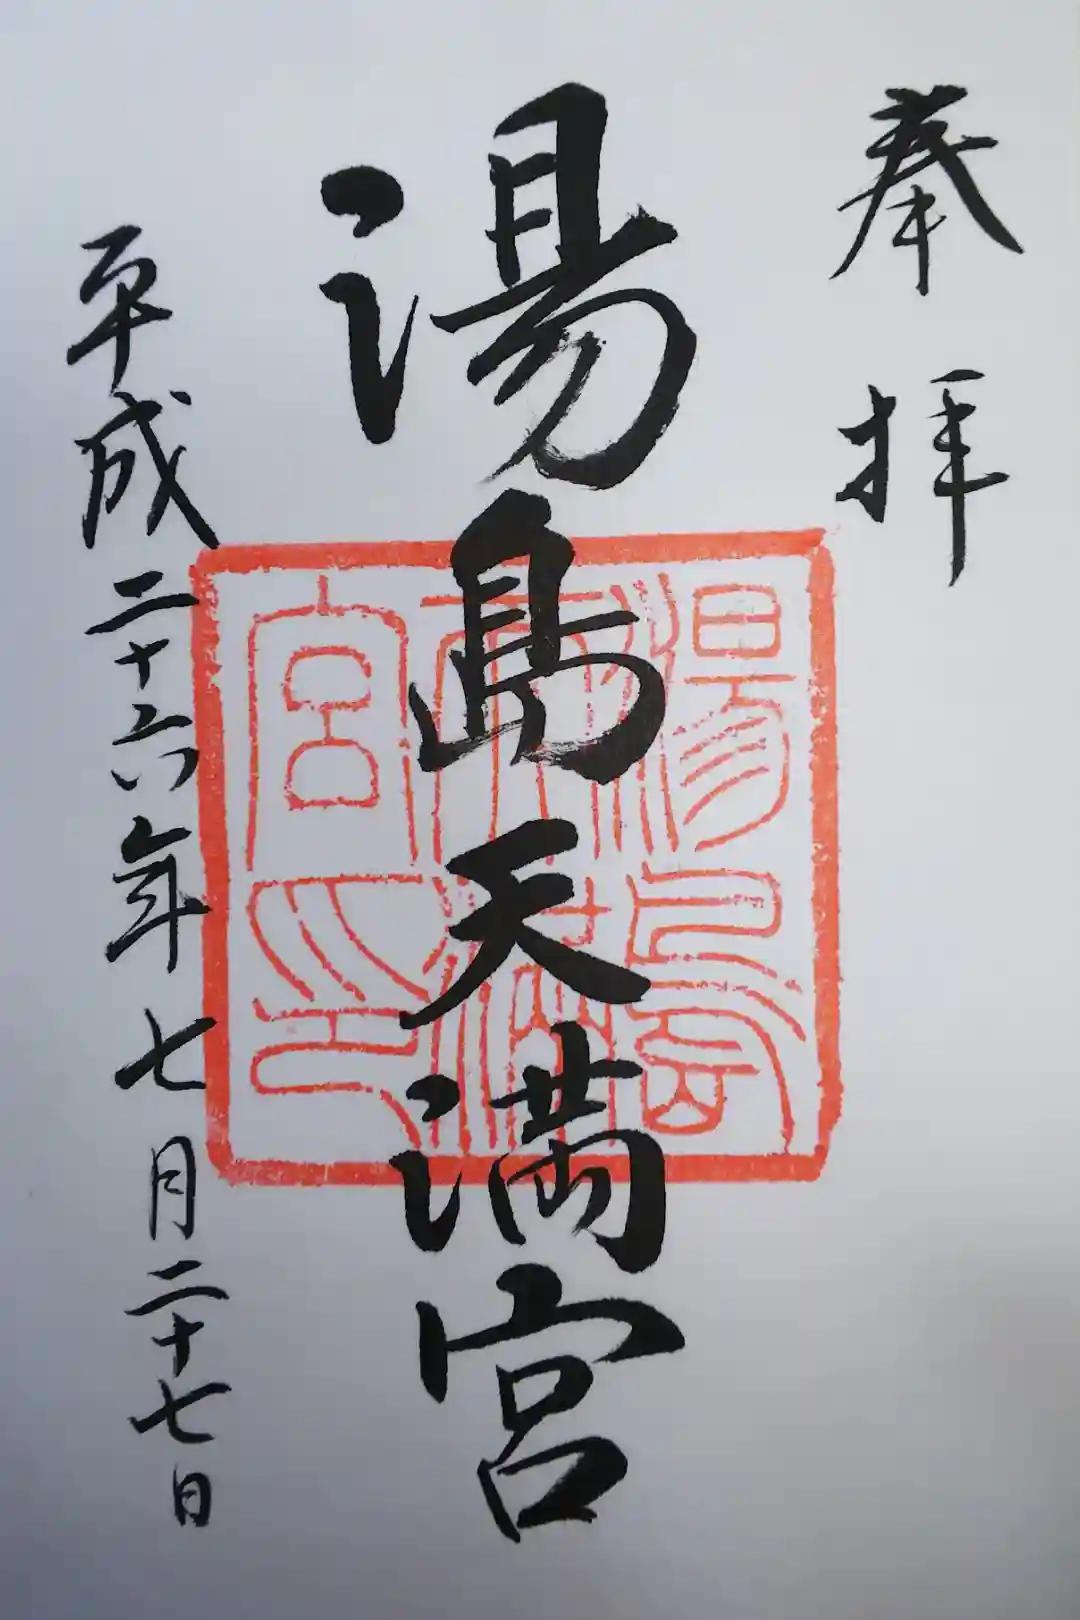 奉拝
湯島天満宮
湯島天満宮印
平成二十六年七月二十七日